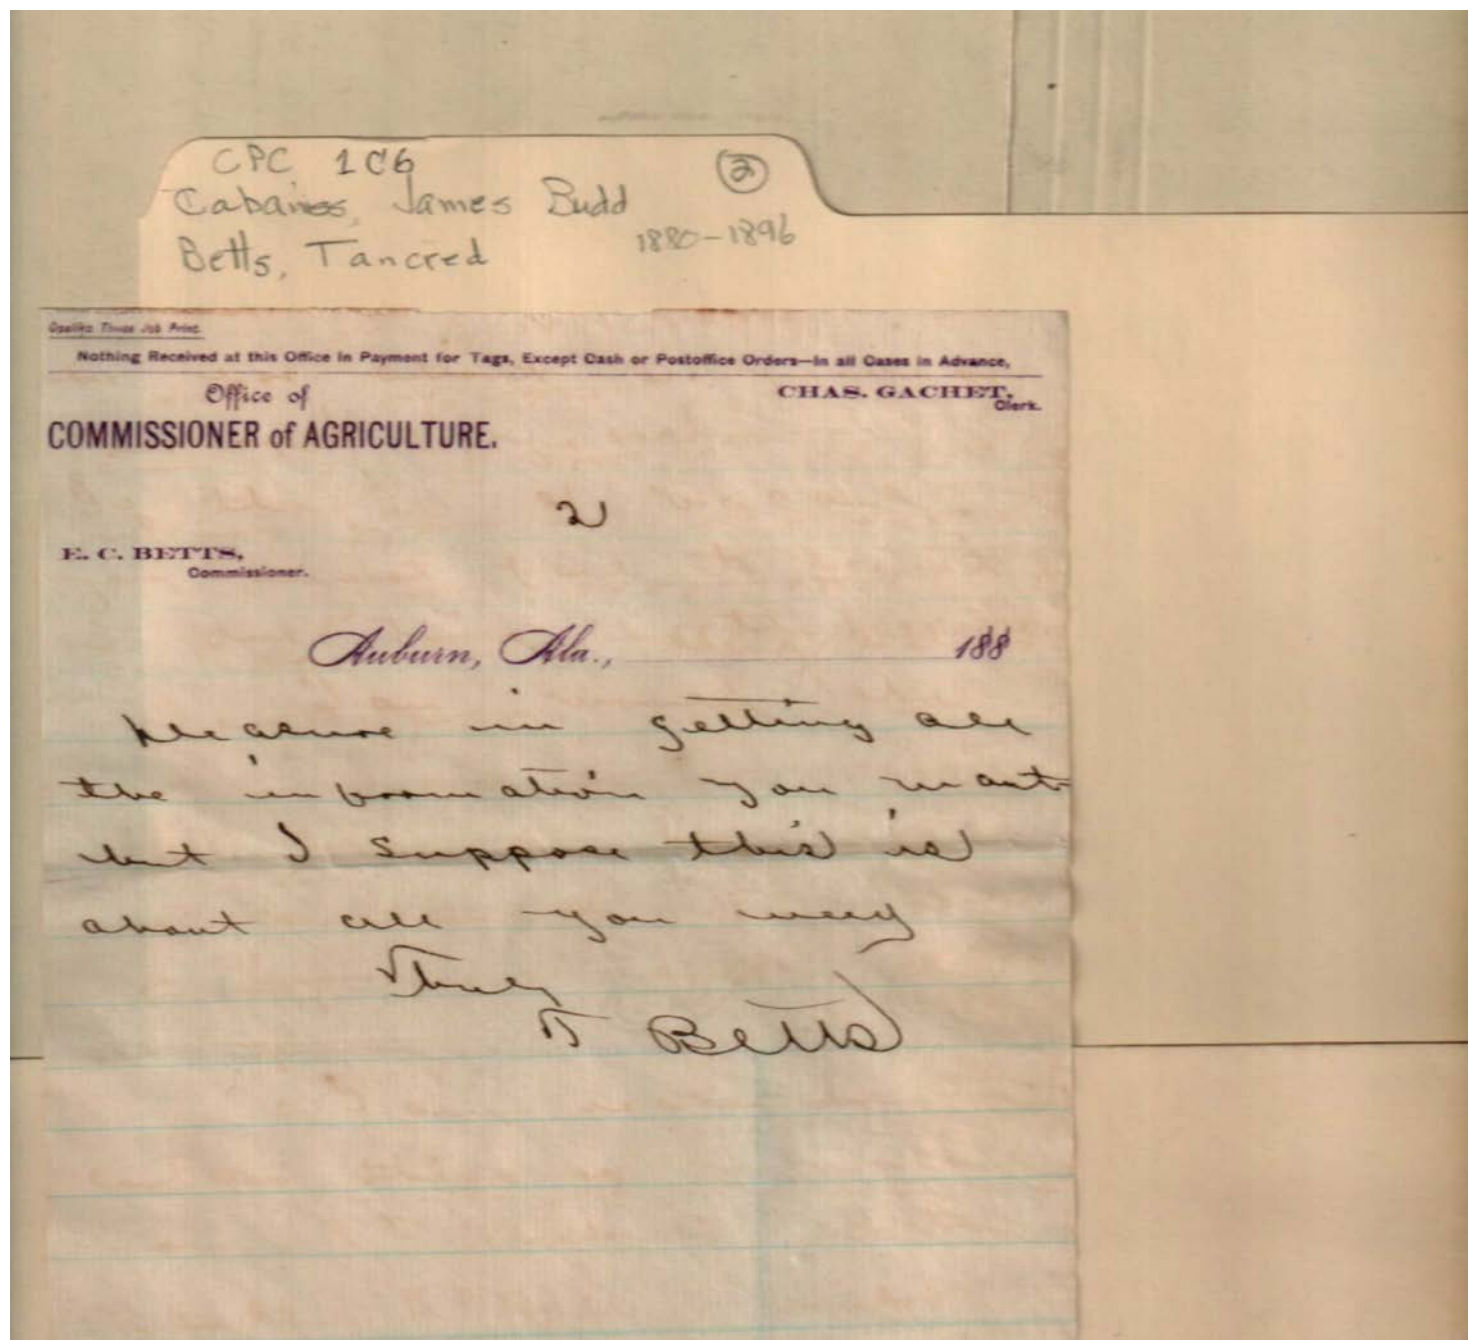 CPC 1C6
②
Cabaniss, James Budd
1880-1896
Betts, Tancred
Opelika Times Job Print.
Nothing Received at this Office in Payment for Tags, Except Cash or Postoffice Orders—In all Cases in Advance,
Office of
CHAS. GACHET,
Clerk.
COMMISSIONER of AGRICULTURE.
2
E. C. BETTS,
Commissioner.
Auburn, Ala., 188
pleasure in getting all
the information you want
but I suppose this is
about all you need
Truly
T Betts